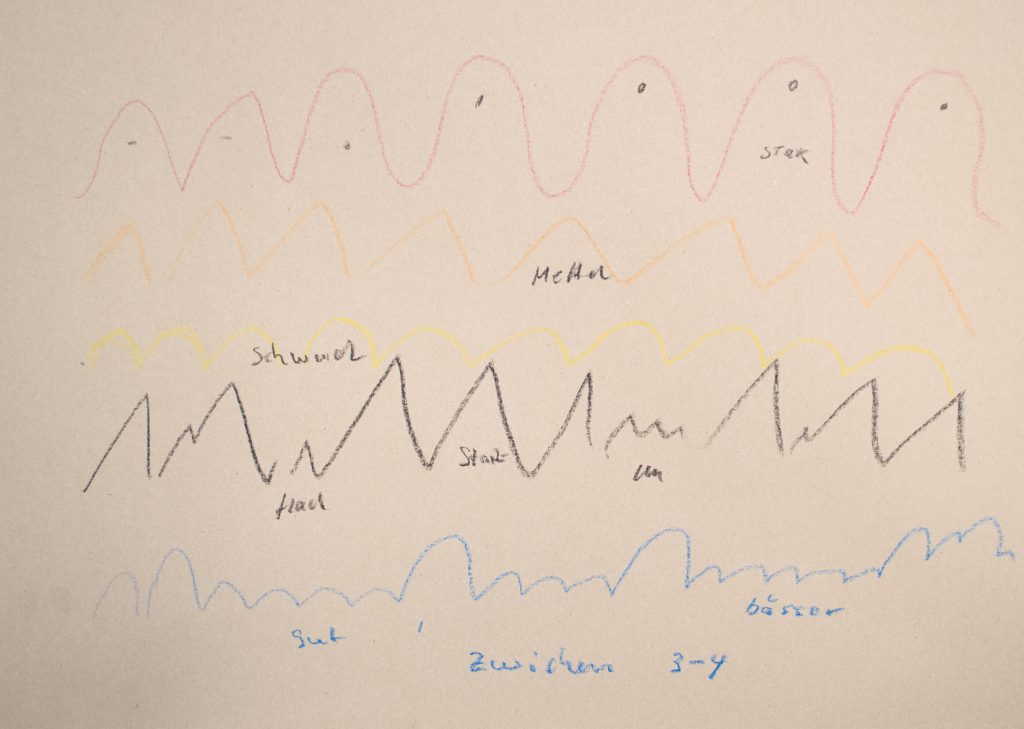 stak
Mettel
Schwach
Stark
um
flach
gut
bässer
Zwichen 3-4